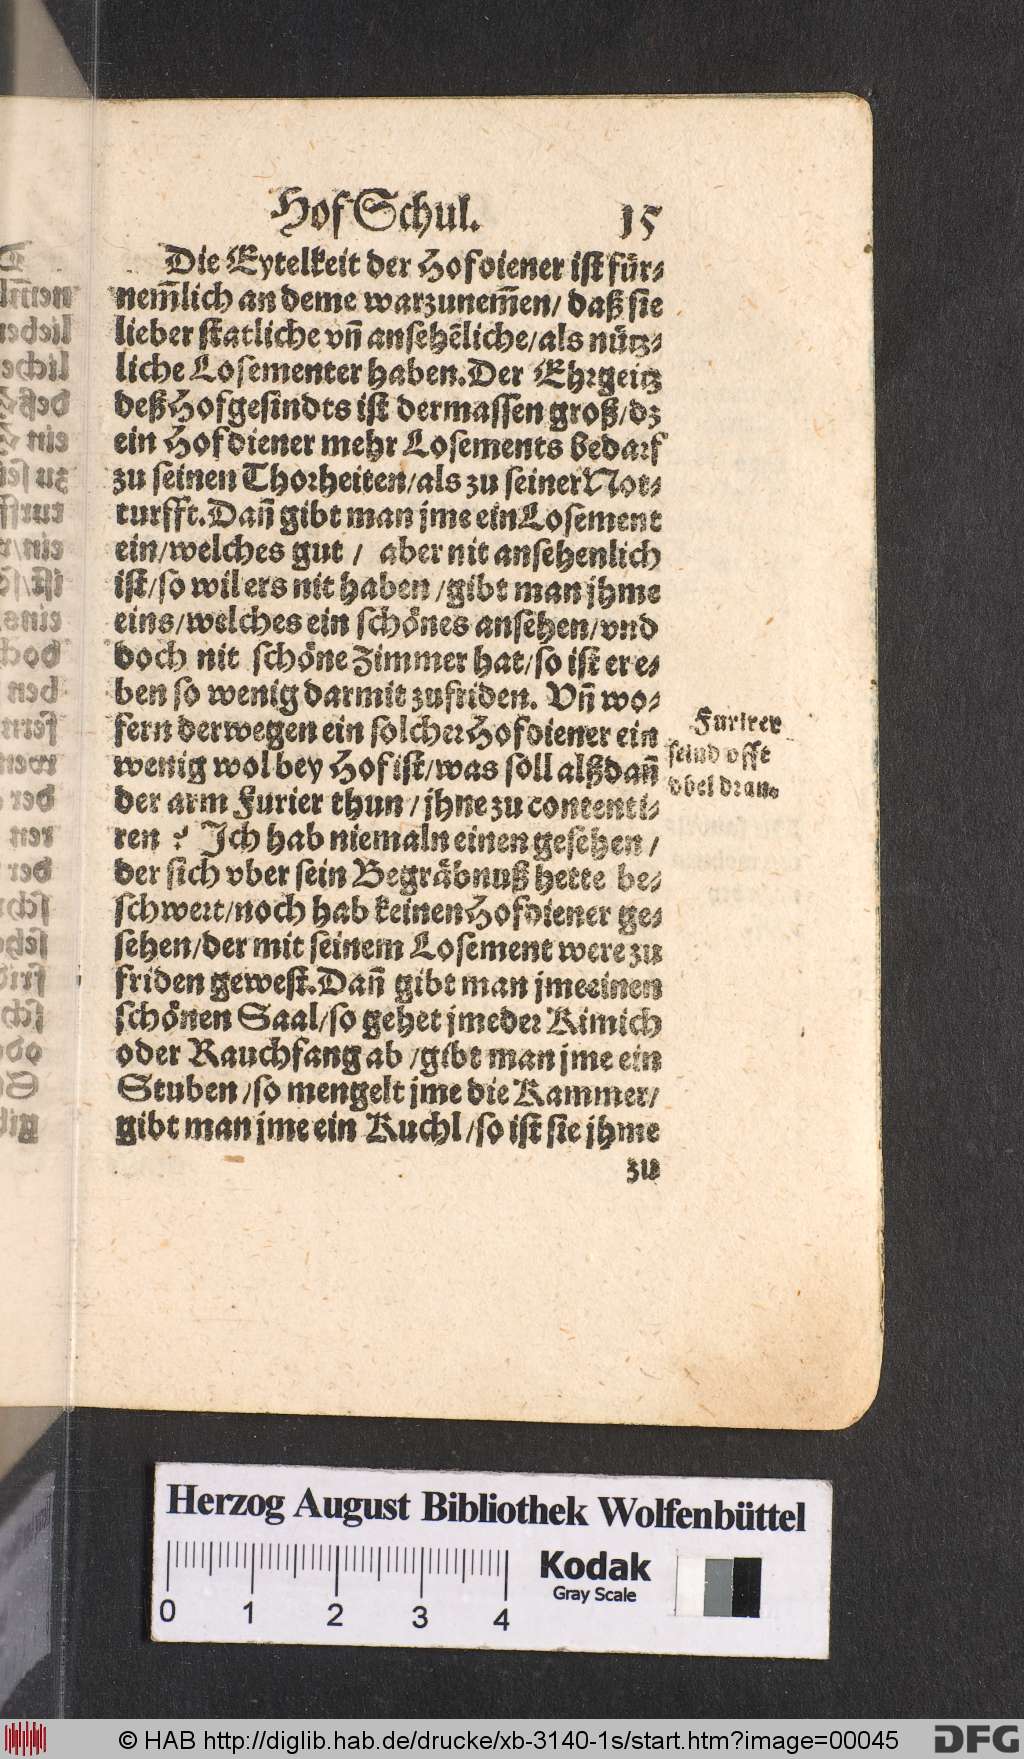 Hof Schul. 15
Die Eytelkeit der Hofdiener ist für-
nem̄lich an deme warzunem̄en/ daß sie
lieber statliche vn̄ ansehēliche/als nütz-
liche Losementer haben.Der Ehrgeitz
deß Hofgesindts ist dermassen groß/dz
ein Hofdiener mehr Losements bedarf
zu seinen Thorheiten/als zu seiner Not-
turfft.Dan̄ gibt man jme ein Losement
ein/welches gut / aber nit ansehenlich
ist/so wil ers nit haben /gibt man jhme
eins/welches ein schönes ansehen/vnd
doch nit schöne Zimmer hat/so ist er e-
ben so wenig darmit zufriden. Vn̄ wo-
fern derwegen ein solcher Hofdiener ein
wenig wol bey Hof ist/was soll alßdan̄
der arm Furier thun / jhne zu contenti-
ren ? Ich hab niemaln einen gesehen /
der sich vber sein Begräbnuß hette be-
schwert/noch hab keinen Hofdiener ge-
sehen/der mit seinem Losement were zu
friden gewest.Dan̄ gibt man jme einen
schönen Saal/so gehet jme der Kimich
oder Rauchfang ab /gibt man jme ein
Stuben /so mengelt jme die Kammer/
gibt man jme ein Kuchl /so ist sie jhme
zu
Furirer
seind offt
vbel dran.
Herzog August Bibliothek Wolfenbüttel
Kodak
Gray Scale
0 1 2 3 4
© HAB http://diglib.hab.de/drucke/xb-3140-1s/start.htm?image=00045
DFG